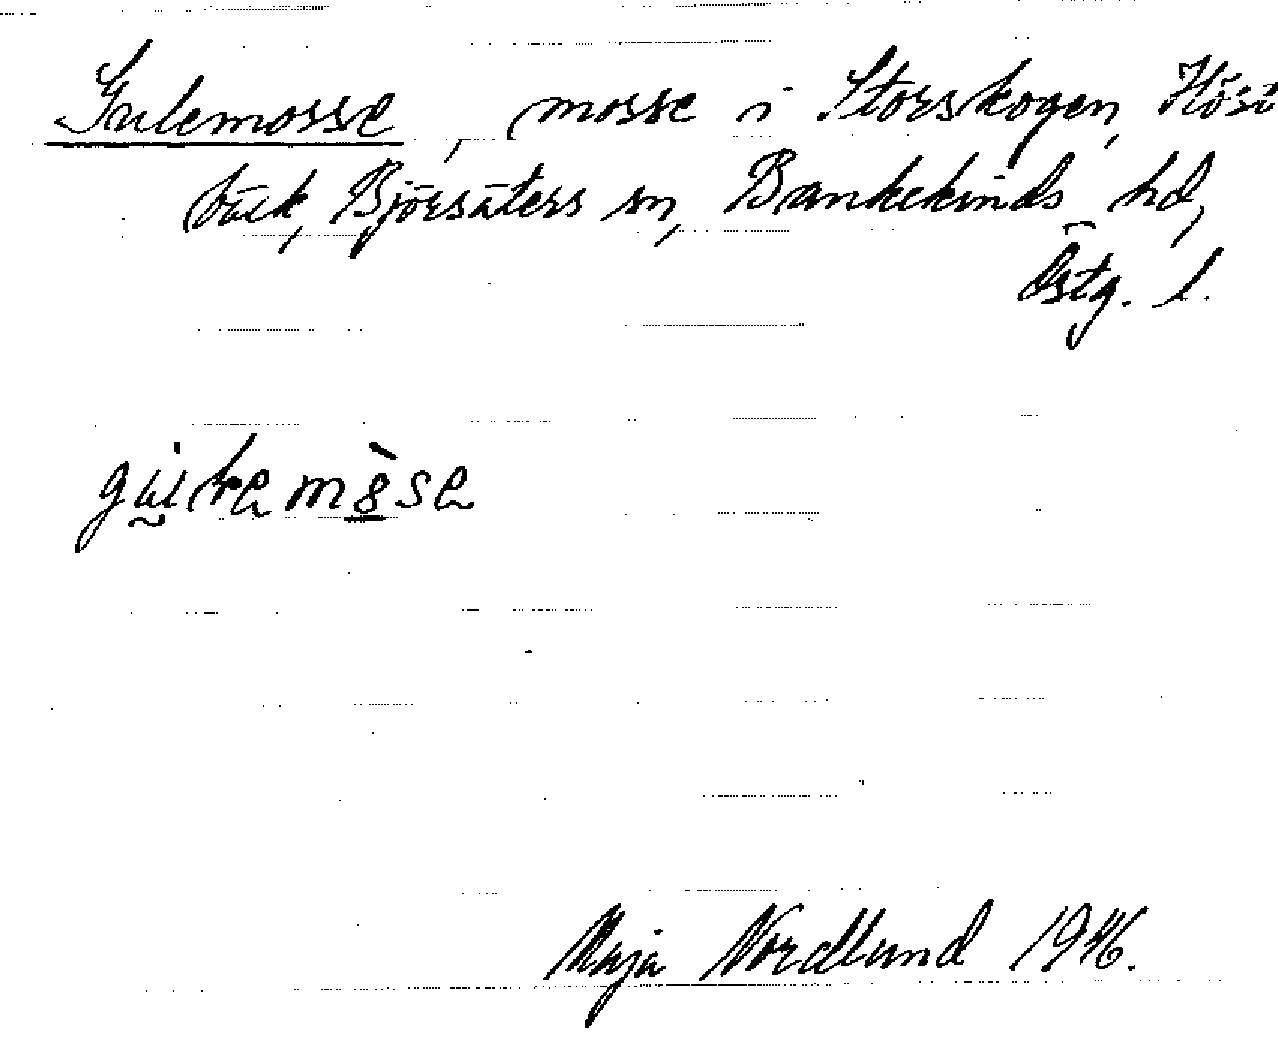 Gulemosse, mosse i Storskogen, Hösi
bäck, Björsäters sn, Bankekinds hd,
Östg. l.
Maja Nordlund 1946.